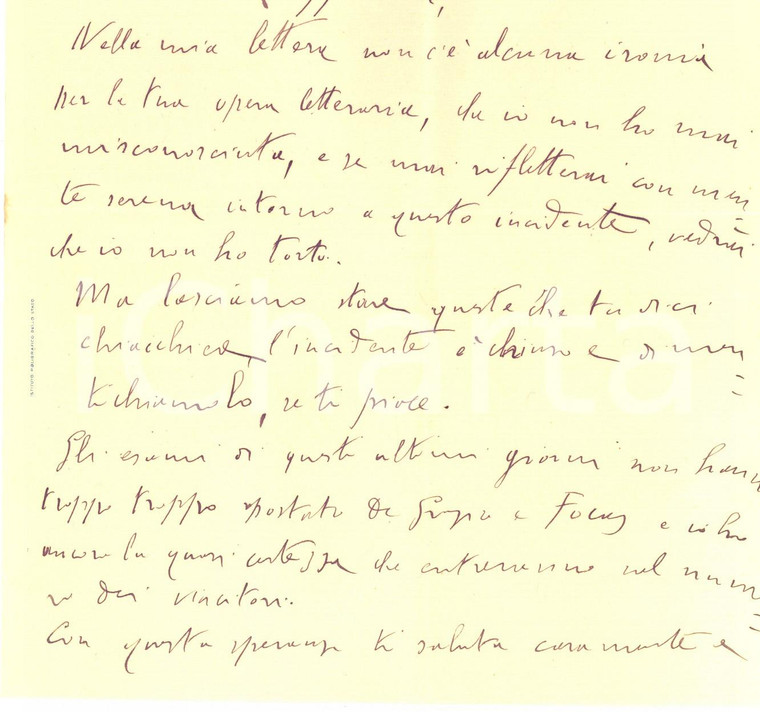 Nella mia lettera non c'è alcuna ironia
per la tua opera letteraria, che io non ho mai
misconosciuta, e se mai rifletterai con men=
te serena intorno a questo incidente, vedrai
che io non ho torto.
Ma lasciamo stare queste che tu dici
chiacchiere, l'incidente è chiuso e dimen=
tichiamolo, se ti piace.
Gli esami di questi ultimi giorni non hanno
troppo troppo spostato da e io ho
ancora la quasi certezza che entreremo nel nume=
ro dei vincitori.
Con questa speranza ti saluta caramente e
iCharta